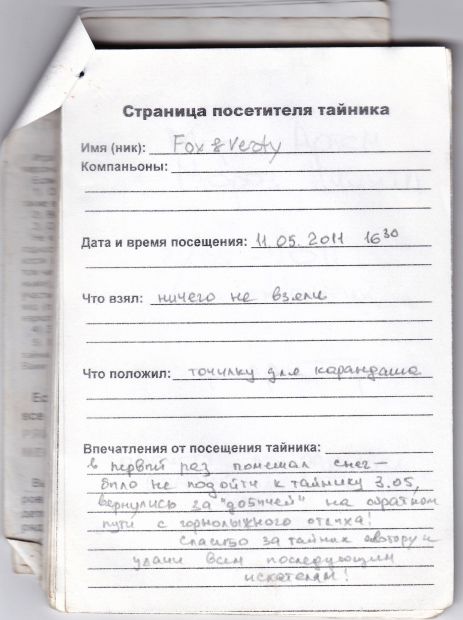 Страница посетителя тайника
Имя (ник): Fox & Vesty
Компаньоны:
Дата и время посещения: 11.05.2011 16 30
Что взял: ничего не взяли
Что положил: точилку для карандаша
Впечатления от посещения тайника:
в первый раз помешал снег –
было не подойти к тайнику 3.05,
вернулись за "добычей" на обратном
пути с горнолыжного отдыха!
Спасибо за тайник автору и
удачи всем последующим
искателям!